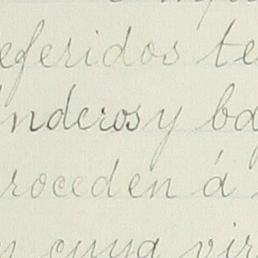 eferidos te
nderos y ba
roceden á
cuya vir